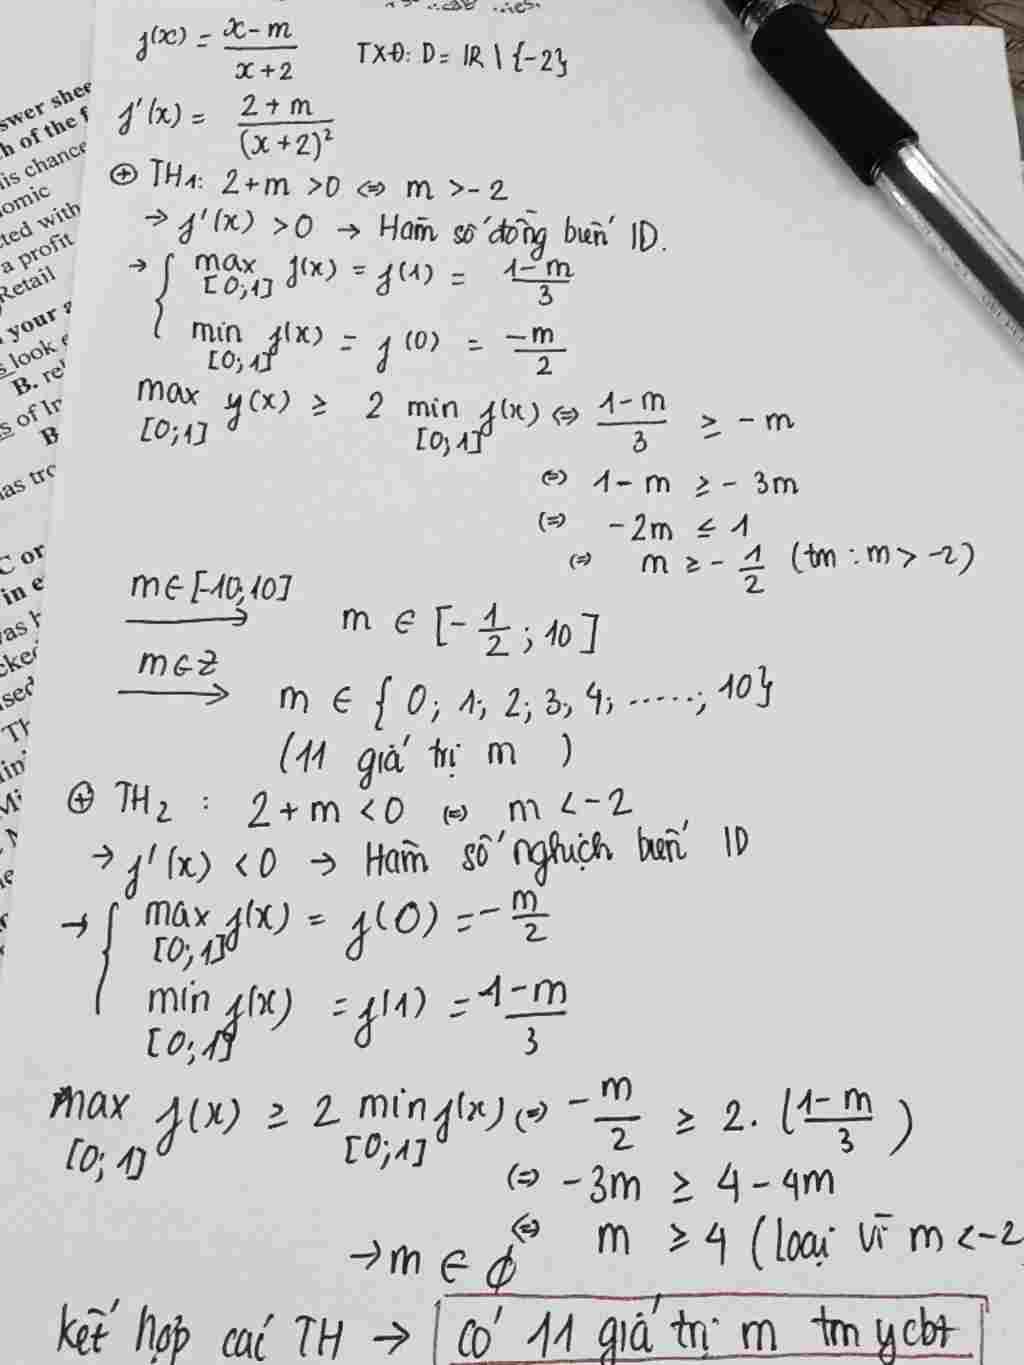 f(x) = \frac{x-m}{x+2} TXĐ: D = IR \ {-2}
f'(x) = \frac{2+m}{(x+2)^2}
⊕ TH1: 2+m >0 ⇔ m >-2
→ f'(x) >0 → Hàm số đồng biến ID.
→ { max [0;1] f(x) = f(1) = \frac{1-m}{3}
min [0;1] f(x) = f(0) = \frac{-m}{2}
max [0;1] y(x) ≥ 2 min [0;1] f(x) ⇔ \frac{1-m}{3} ≥ -m
⇔ 1-m ≥ -3m
⇔ -2m ≤ 1
⇔ m ≥ -\frac{1}{2} (tm: m > -2)
m∈[-10;10] → m ∈ [-\frac{1}{2}; 10]
m∈Z → m ∈ { 0; 1; 2; 3; 4; .....; 10}
(11 giá trị m )
⊕ TH2 : 2+m <0 ⇔ m <-2
→ f'(x) <0 → Hàm số nghịch biến ID
→ { max [0;1] f(x) = f(0) = -\frac{m}{2}
min [0;1] f(x) = f(1) = \frac{1-m}{3}
max [0;1] f(x) ≥ 2 min [0;1] f(x) ⇔ -\frac{m}{2} ≥ 2. (\frac{1-m}{3})
⇔ -3m ≥ 4-4m
⇔ m ≥ 4 (loại vì m <-2
→ m ∈ ∅
kết hợp các TH → có 11 giá trị m tm ycbt
swer shee
h of the f
is chance
omic
cted with
a profit
Retail
your a
look
B. re
s of In
B
as tro
C or
in e
vas h
cked
sed
Th